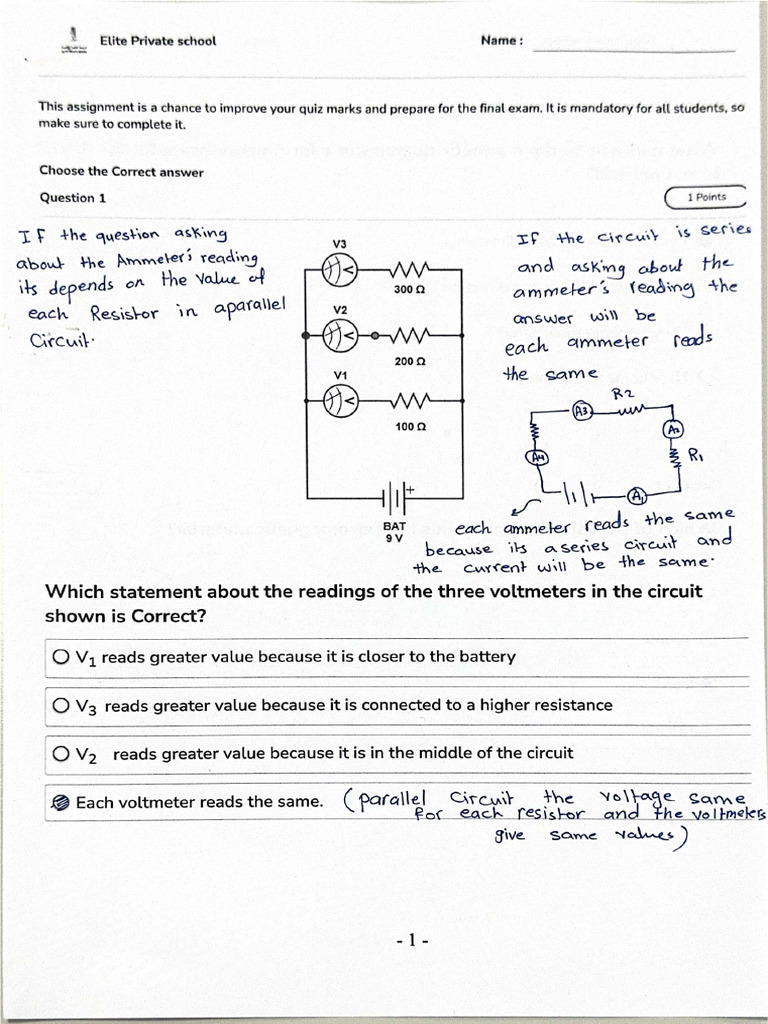 Elite Private school
Name :
This assignment is a chance to improve your quiz marks and prepare for the final exam. It is mandatory for all students, so
make sure to complete it.
Choose the Correct answer
Question 1
1 Points
IF the question asking
about the Ammeter's reading
its depends on the value of
each Resistor in aparallel
Circuit.
V3
300 Ω
V2
200 Ω
V1
100 Ω
+
BAT
9 V
IF the circuit is series
and asking about the
ammeter's reading the
answer will be
each ammeter reads
the same
R2
A3
A2
R1
A4
A1
each ammeter reads the same
because its a series circuit and
the current will be the same.
Which statement about the readings of the three voltmeters in the circuit
shown is Correct?
V1 reads greater value because it is closer to the battery
V3 reads greater value because it is connected to a higher resistance
V2 reads greater value because it is in the middle of the circuit
Each voltmeter reads the same. (parallel circuit the voltage same
for each resistor and the voltmeters
give same values)
- 1 -